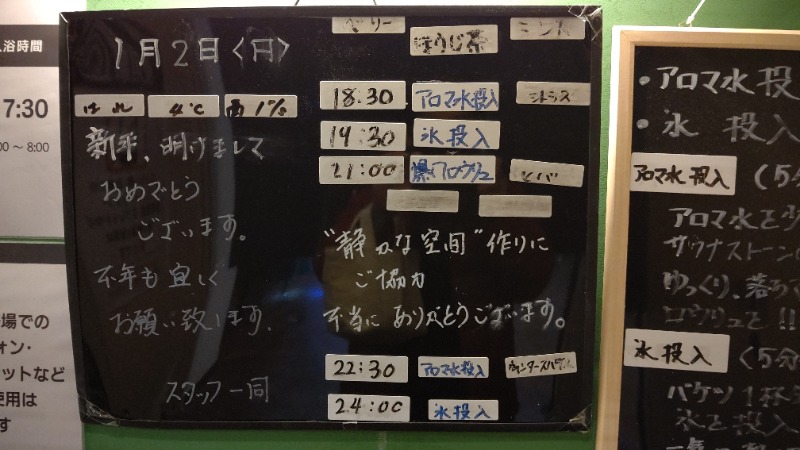 1月2日〈月〉
はれ 4℃ 雨1%
新年、明けまして
おめでとう
ございます。
本年も宜しく
お願い致します。
スタッフ一同
ほうじ茶
18:30 アロマ水投入 シトラス
19:30 氷投入
21:00 爆アロウリュ ヒバ
"静かな空間"作りに
ご協力
本当にありがとうございます。
22:30 アロマ水投入
24:00 氷投入
・アロマ水投
・氷 投入
アロマ水投入 (5分
アロマ水を少
サウナストーン
ゆっくり、落
ロウリュを!!
氷投入 (5分
バケツ1杯
氷を投入
入浴時間
7:30
~8:00
場での
ォン・
ットなど
使用は
す